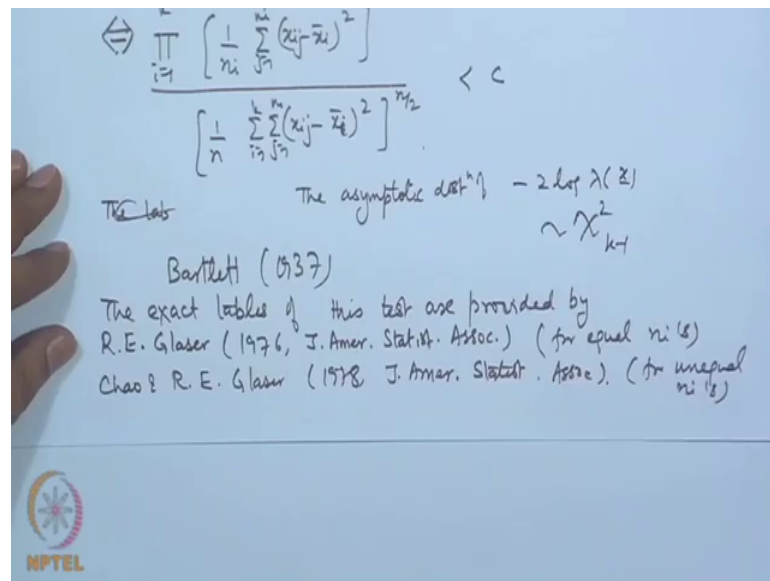 ⇔ k ∏ i=1 [ 1/ni ni Σ j=1 (xij - x̄i)² ]
[ 1/n k Σ i=1 ni Σ j=1 (xij - x̄i)² ]^n/2 < c
The asymptotic distⁿ of - 2 log λ(x)
~ χ² k-1
Bartlett (1937)
The exact tables of this test are provided by
R.E. Glaser (1976, J. Amer. Statist. Assoc.) (for equal ni's)
Chao & R.E. Glaser (1978 J. Amer. Statist. Assoc). (for unequal
ni's)
NPTEL